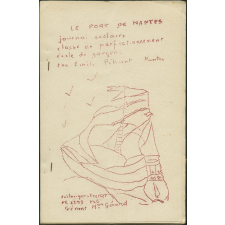 LE PORT DE NANTES
journal scolaire
classe de perfectionnement
école de garçons
rue Emile Péhant Nantes
Gérard